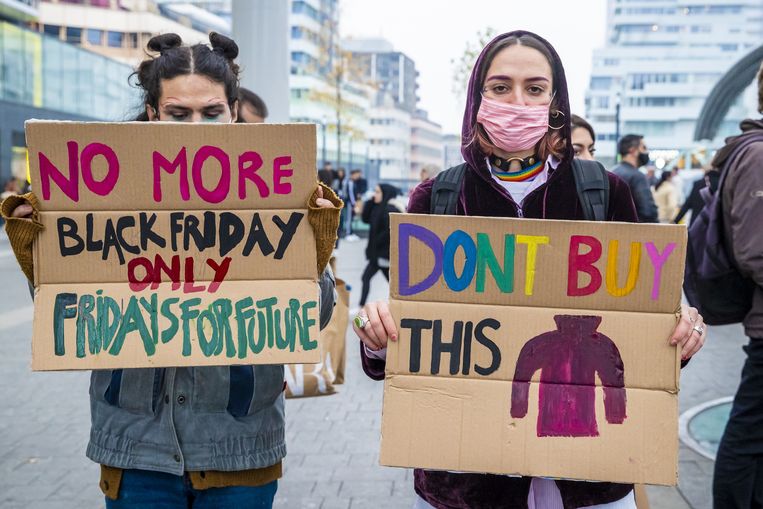 NO MORE
BLACK FRIDAY
ONLY
FRIDAYS FOR FUTURE
DONT BUY
THIS